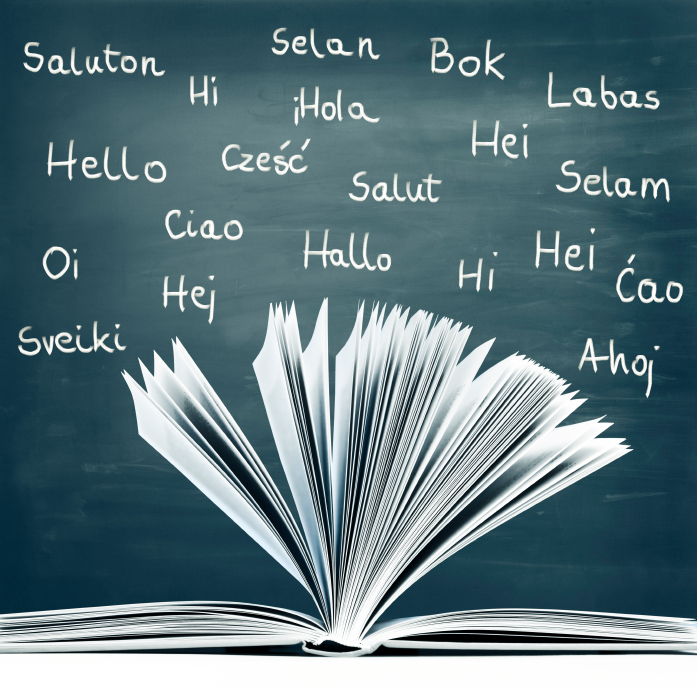 Saluton
Selan
Bok
Hi
¡Hola
Labas
Hello
Cześć
Hei
Salut
Selam
Ciao
Oi
Hallo
Hi
Hei
Ćao
Hej
Sveiki
Ahoj